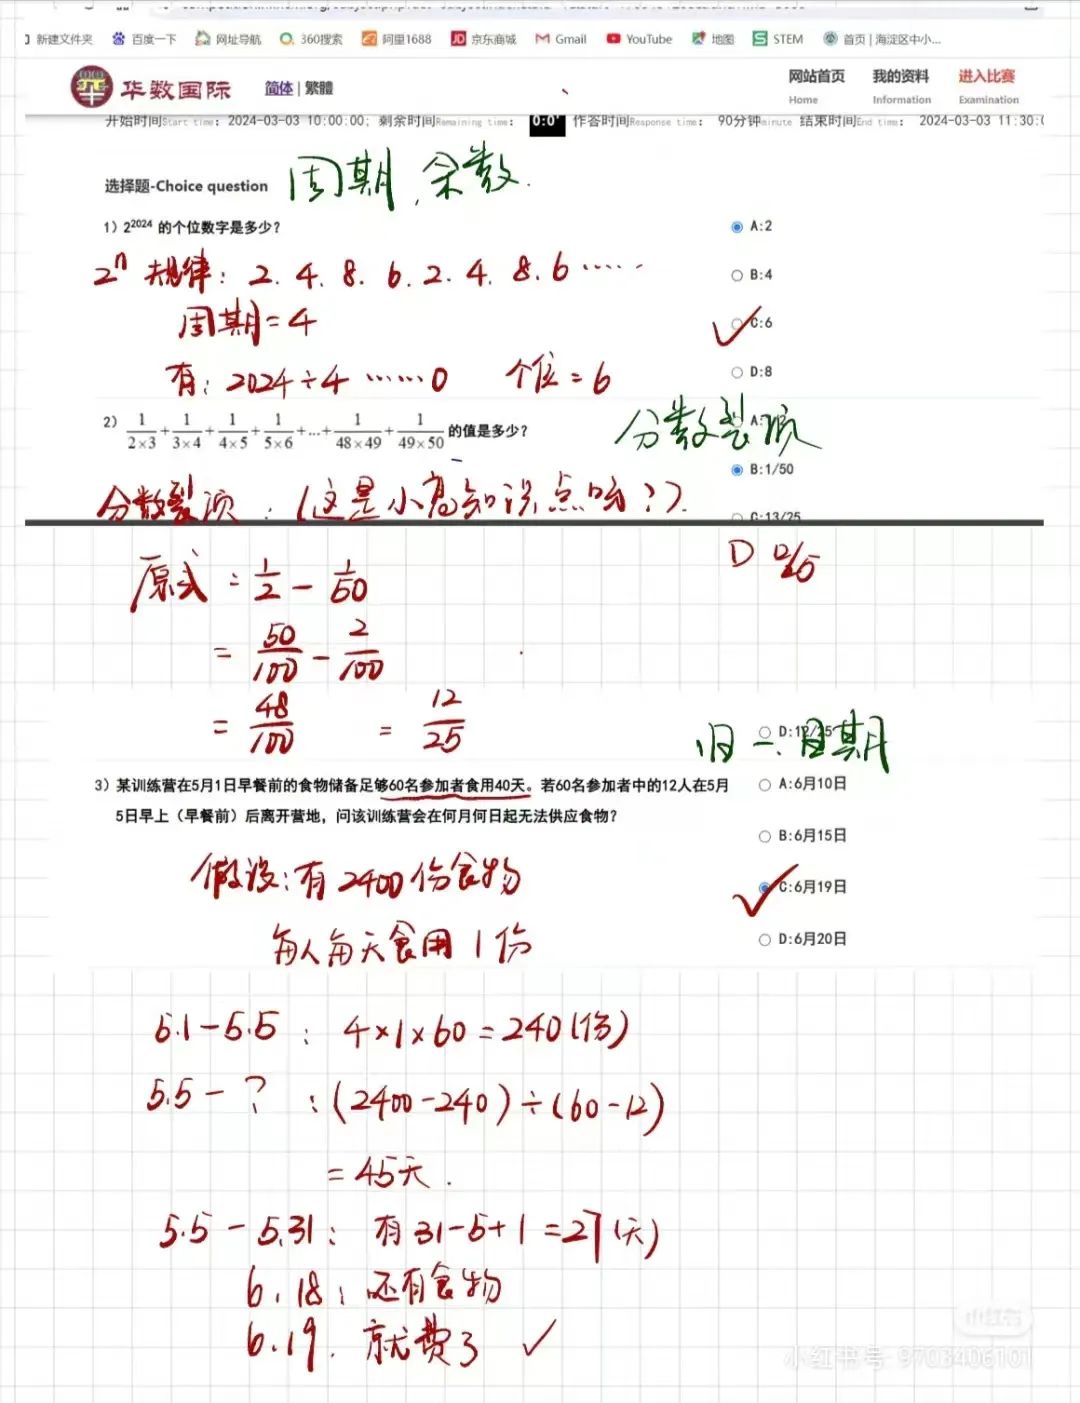 新建文件夹 百度一下 网址导航 360搜索 阿里1688 京东商城 Gmail YouTube 地图 STEM 首页 | 海淀区中小...
华数国际 简体 | 繁體 网站首页 我的资料 进入比赛
Home Information Examination
开始时间Start time: 2024-03-03 10:00:00; 剩余时间Remaining time: 0:0' 作答时间Response time: 90分钟minute 结束时间End time: 2024-03-03 11:30:0
选择题-Choice question 周期，余数.
1) 2²⁰²⁴ 的个位数字是多少?
A:2
2ⁿ 规律: 2. 4. 8. 6. 2. 4. 8. 6 ……
B:4
周期=4
C:6
有: 2024÷4 ……0 个位=6
D:8
2) 1/(2×3)+1/(3×4)+1/(4×5)+1/(5×6)+...+1/(48×49)+1/(49×50) 的值是多少?
分数裂项
A:
B:1/50
分数裂项: (这是小高知识点哦?).
C:13/25
原式=1/2-1/50
D 12/25
=50/100-2/100
=48/100 =12/25
D:12/25
归一.日期
3) 某训练营在5月1日早餐前的食物储备足够60名参加者食用40天。若60名参加者中的12人在5月
5日早上（早餐前）后离开营地，问该训练营会在何月何日起无法供应食物?
A:6月10日
B:6月15日
C:6月19日
D:6月20日
假设:有2400份食物
每人每天食用1份
5.1-5.5: 4×1×60=240(份)
5.5-?: (2400-240)÷(60-12)
=45天.
5.5-5.31: 有31-5+1=27(天)
6.18: 还有食物
6.19. 就费了 ✓
小红书
小红书号: 9703406101